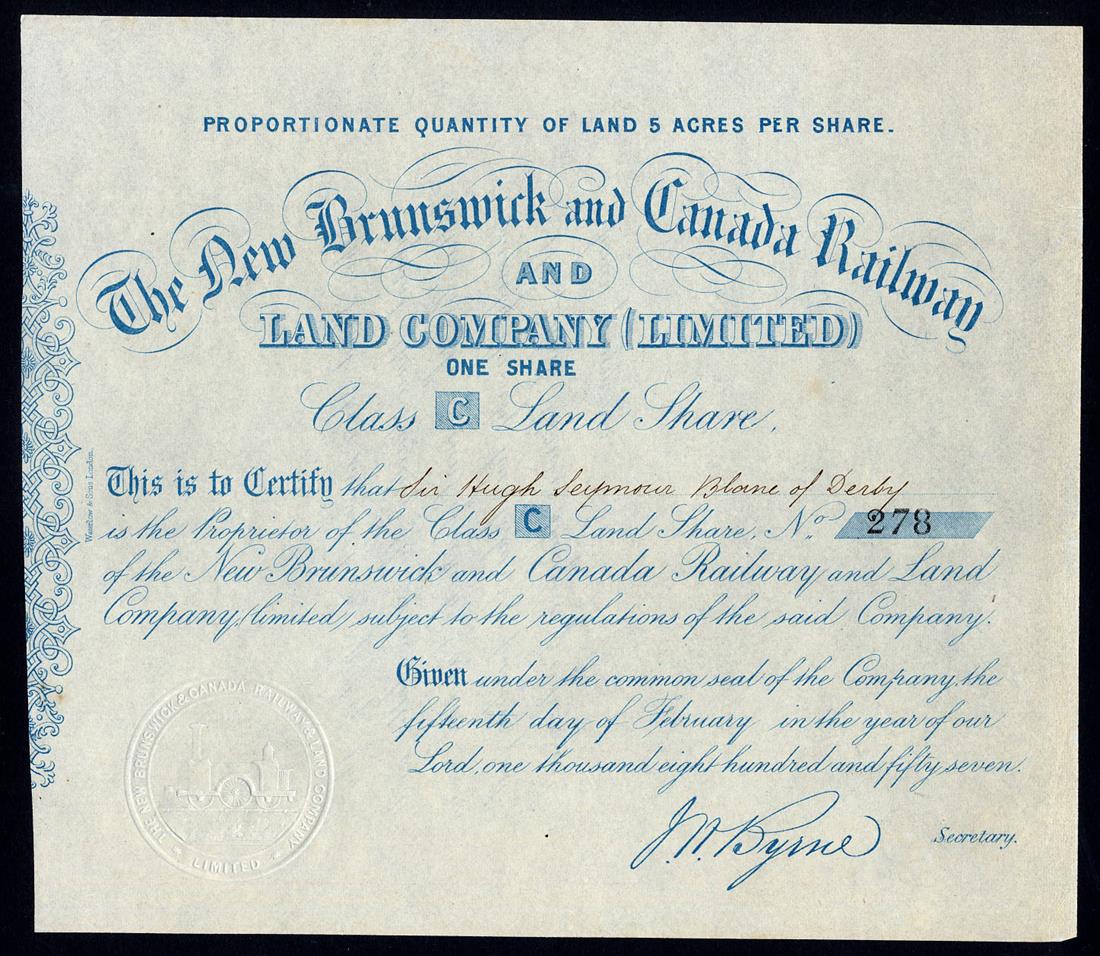 PROPORTIONATE QUANTITY OF LAND 5 ACRES PER SHARE.
The New Brunswick and Canada Railway
AND
LAND COMPANY (LIMITED)
ONE SHARE
Class C Land Share.
This is to Certify that Sir Hugh Seymour Blane of Derby
is the Proprietor of the Class C Land Share, No. 278
of the New Brunswick and Canada Railway and Land
Company, (limited) subject to the regulations of the said Company.
Given under the common seal of the Company, the
fifteenth day of February in the year of our
Lord, one thousand eight hundred and fifty seven.
J. W. Byrne Secretary.
THE NEW BRUNSWICK & CANADA RAILWAY & LAND COMPANY
LIMITED
& Sons London.